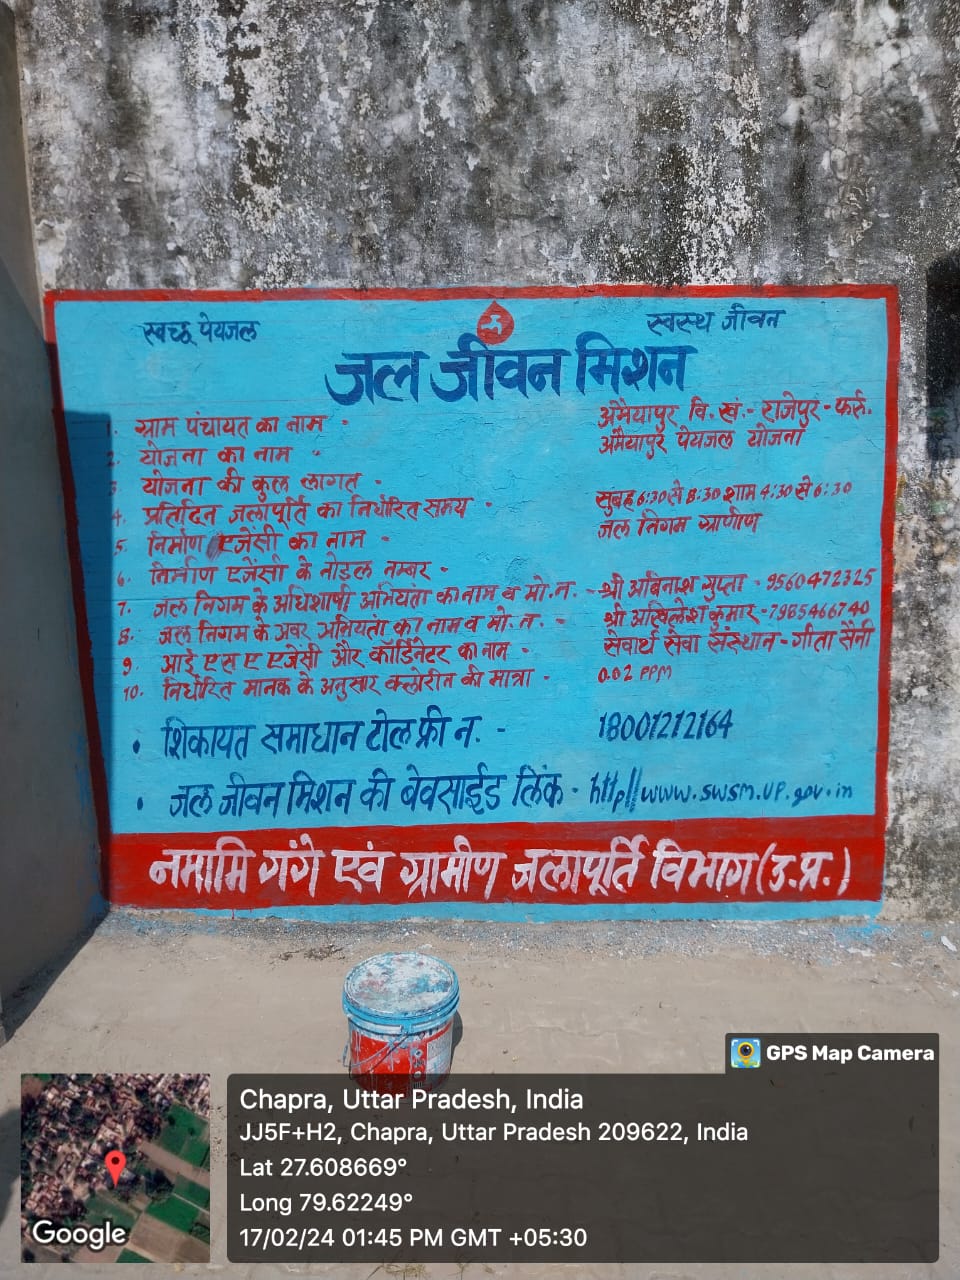 स्वच्छ पेयजल स्वस्थ जीवन
जल जीवन मिशन
1. ग्राम पंचायत का नाम - अमैयापुर वि. खं.- राजेपुर - फर्रु.
2. योजना का नाम " अमैयापुर पेयजल योजना
3. योजना की कुल लागत -
4. प्रतिदिन जलापूर्ति का निर्धारित समय - सुबह 6:30 से 8:30 शाम 4:30 से 6:30
5. निर्माण एजेंसी का नाम - जल निगम ग्रामीण
6. निर्माण एजेंसी के नोडल नम्बर -
7. जल निगम के अधिशाषी अभियंता का नाम व मो. न. - श्री अविनाश गुप्ता - 9560472325
8. जल निगम के अवर अभियंता का नाम व मो. न. - श्री अखिलेश कुमार - 7985466740
9. आई एस ए एजेंसी और कॉर्डिनेटर का नाम - सेवार्थ सेवा संस्थान - गीता सैनी
10. निर्धारित मानक के अनुसार क्लोरीन की मात्रा - 0.02 PPM
• शिकायत समाधान टोल फ्री न. - 18001212164
• जल जीवन मिशन की बेवसाईड लिंक - http//www.swsm.up.gov.in
नमामि गंगे एवं ग्रामीण जलापूर्ति विभाग (उ.प्र.)
GPS Map Camera
Chapra, Uttar Pradesh, India
JJ5F+H2, Chapra, Uttar Pradesh 209622, India
Lat 27.608669°
Long 79.62249°
17/02/24 01:45 PM GMT +05:30
Google